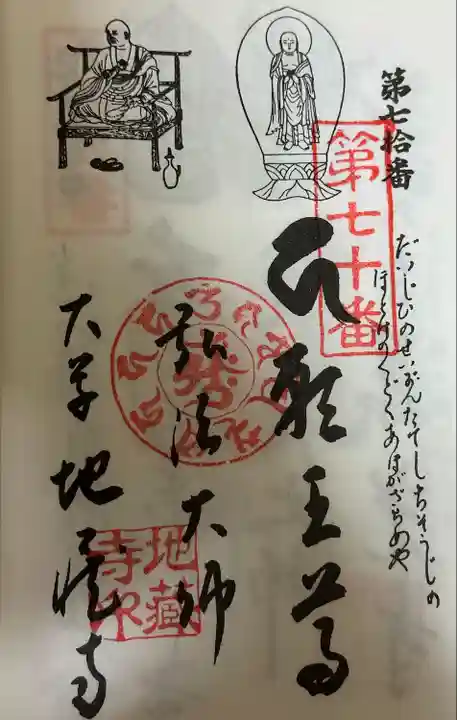 第七拾番
だいじひのせいがんたてしちぞうじの
ほとけのくどくあほがざらめや
第七十番
願王尊
弘法大師
大草 地蔵寺
地藏
寺印